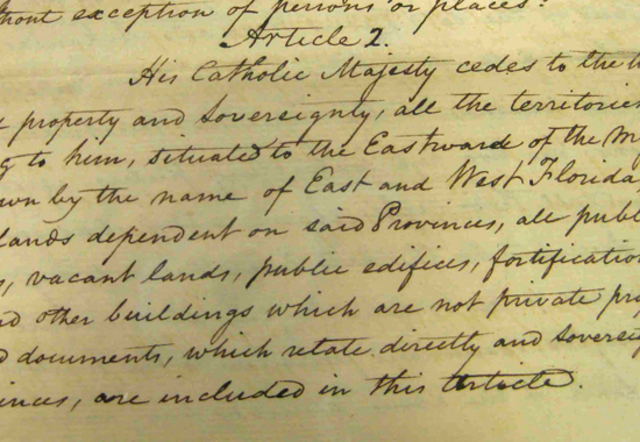 thout exception of persons or places.
Article 2.
His Catholic Majesty cedes to the U
property and Sovereignty, all the territories
g to him, situated to the Eastward of the M
own by the name of East and West Florida
lands dependent on said Provinces, all publ
s, vacant lands, public edifices, fortification
nd other buildings which are not private pro
d documents, which relate directly and sovereig
inces, are included in this Article.